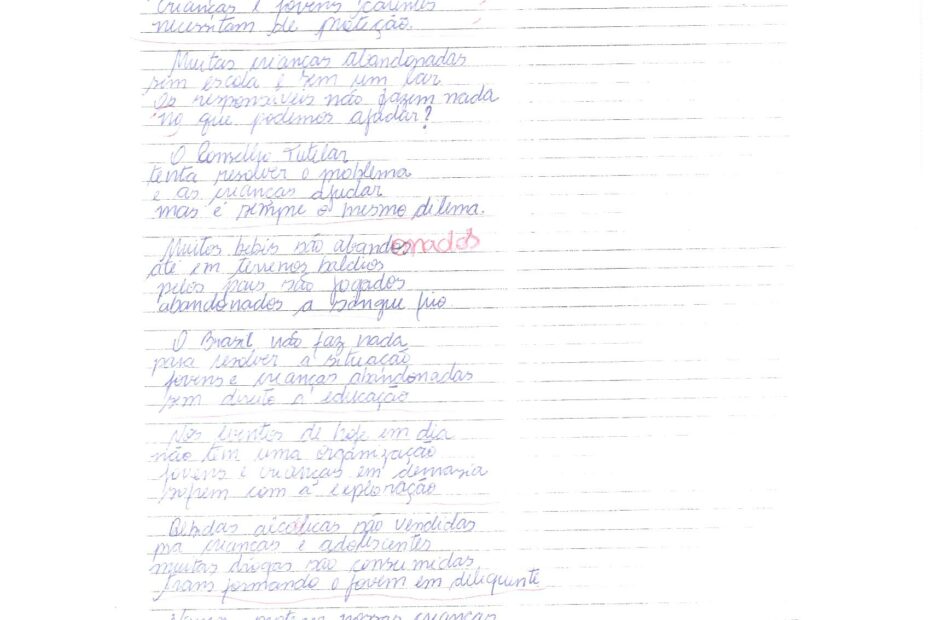 crianças e jovens carentes
necessitam de proteção.
Muitas crianças abandonadas
sem escola e sem um lar
Os responsáveis não fazem nada
No que podemos ajudar?
O Conselho Tutelar
tenta resolver o problema
e as crianças ajudar
mas é sempre o mesmo dilema.
Muitos bebês são abandonados
até em terrenos baldios
pelos pais são jogados
abandonados a sangue frio
O Brasil não faz nada
para resolver a situação
jovens e crianças abandonadas
sem direito a educação
Nos eventos de hoje em dia
não tem uma organização
jovens e crianças em demasia
sofrem com a exploração
Bebidas alcoolicas são vendidas
pra crianças e adolescentes
muitas drogas são consumidas
transformando o jovem em deliquente
nossas crianças